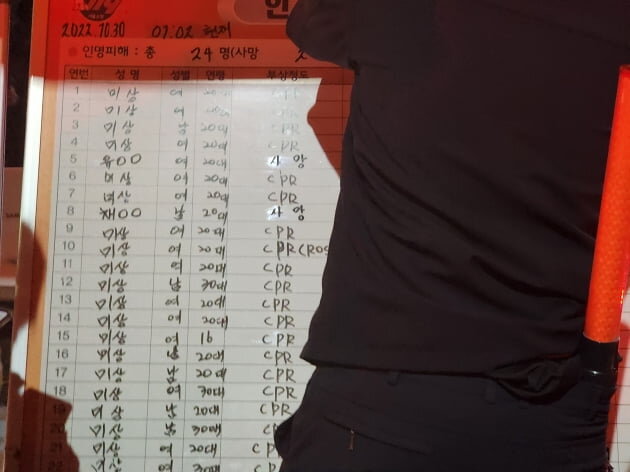 인
2022.10.30 01.02 현재
인명피해 : 총 24 명(사망 2
연번 성 명 성별 연령 부상정도
1 미상 여 20대 CPR
2 미상 여 20대 CPR
3 미상 남 20대 CPR
4 미상 여 20대 CPR
5 유○○ 여 20대 사 망
6 미상 여 20대 CPR
7 미상 여 20대 CPR
8 채○○ 남 20대 사 망
9 미상 여 20대 CPR
10 미상 여 20대 CPR(ROS
11 미상 여 20대 CPR
12 미상 남 30대 CPR
13 미상 여 20대 CPR
14 미상 여 20대 CPR
15 미상 여 16 CPR
16 미상 남 20대 CPR
17 미상 남 20대 CPR
18 미상 여 30대 CPR
19 미상 남 20대 CPR
20 미상 남 30대 CPR
21 미상 여 20대 CP
22 미상 여 30대 CP